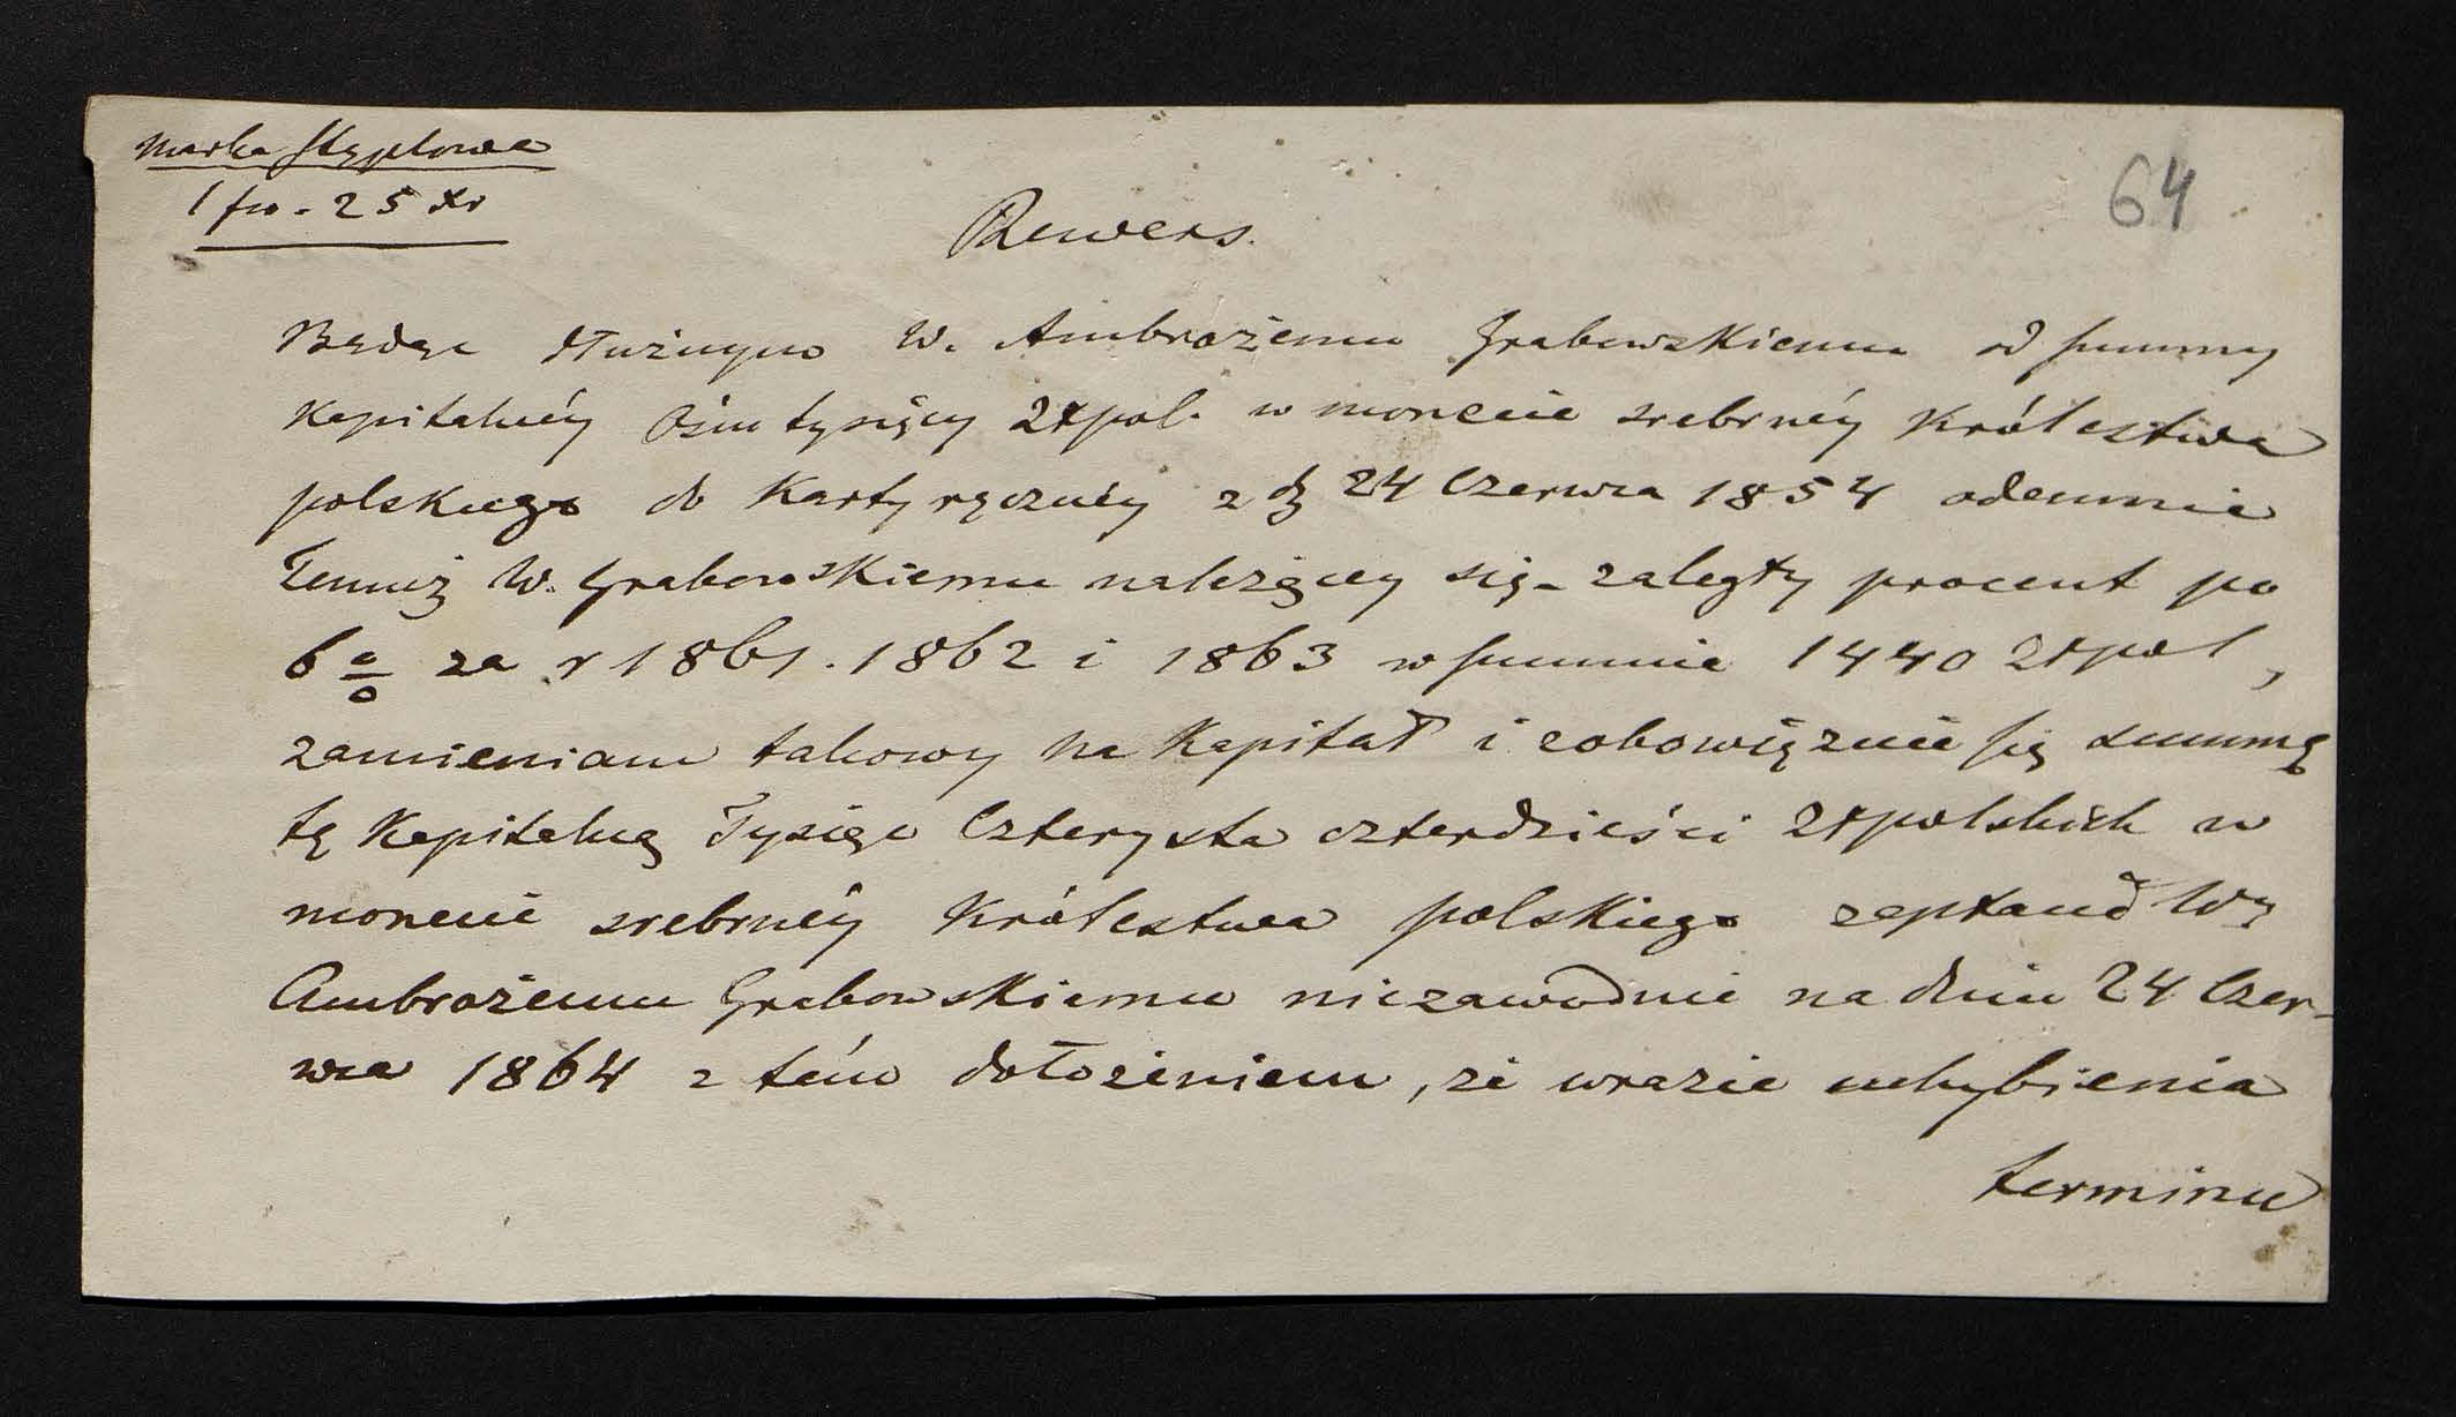 Marka stęplowa
1 fro. 25 xr
64
Rewers.
Będąc dłużnym W. Ambrożemu Grabowskiemu od summy
Kapitalnéy Ośm tysięcy Złpol. w monecie srebrnéy Królestwa
polskiego do Karty ręcznéy z d 24 Czerwca 1854 odemnie
Temuż W. Grabowskiemu należącey się - zaległy procent po
6 % za r 1861. 1862 i 1863 w summie 1440 Złpol,
zamieniam takowy na Kapitał i zobowięzuie się summę
tę Kapitalną Tysiąc Czterysta czterdzieści Złpolskich w
monecie srebrnéy Królestwa polskiego zapłacić W
Ambrożemu Grabowskiemu niezawodnie na dniu 24 Czer-
wca 1864 z tém dołożeniem, że wrazie uchybienia
terminu